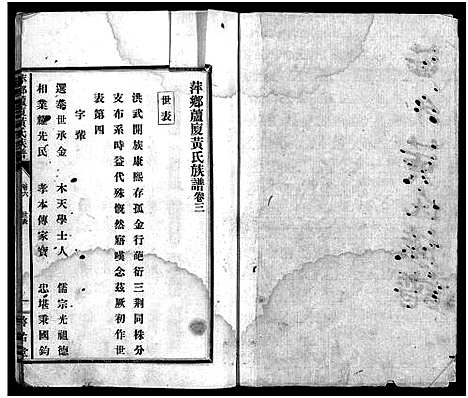 萍鄉蘆廈黃氏族譜卷三
世表
洪武開族康熙存孤金行葩衍三荆同株分
支布系時益代殊慨然寤嘆念茲厥初作世
表第四
字輩
選舉世承金 木天學士人 儒宗光祖德
相業紹先民 孝本傳家寶 忠堪秉國鈞
世表